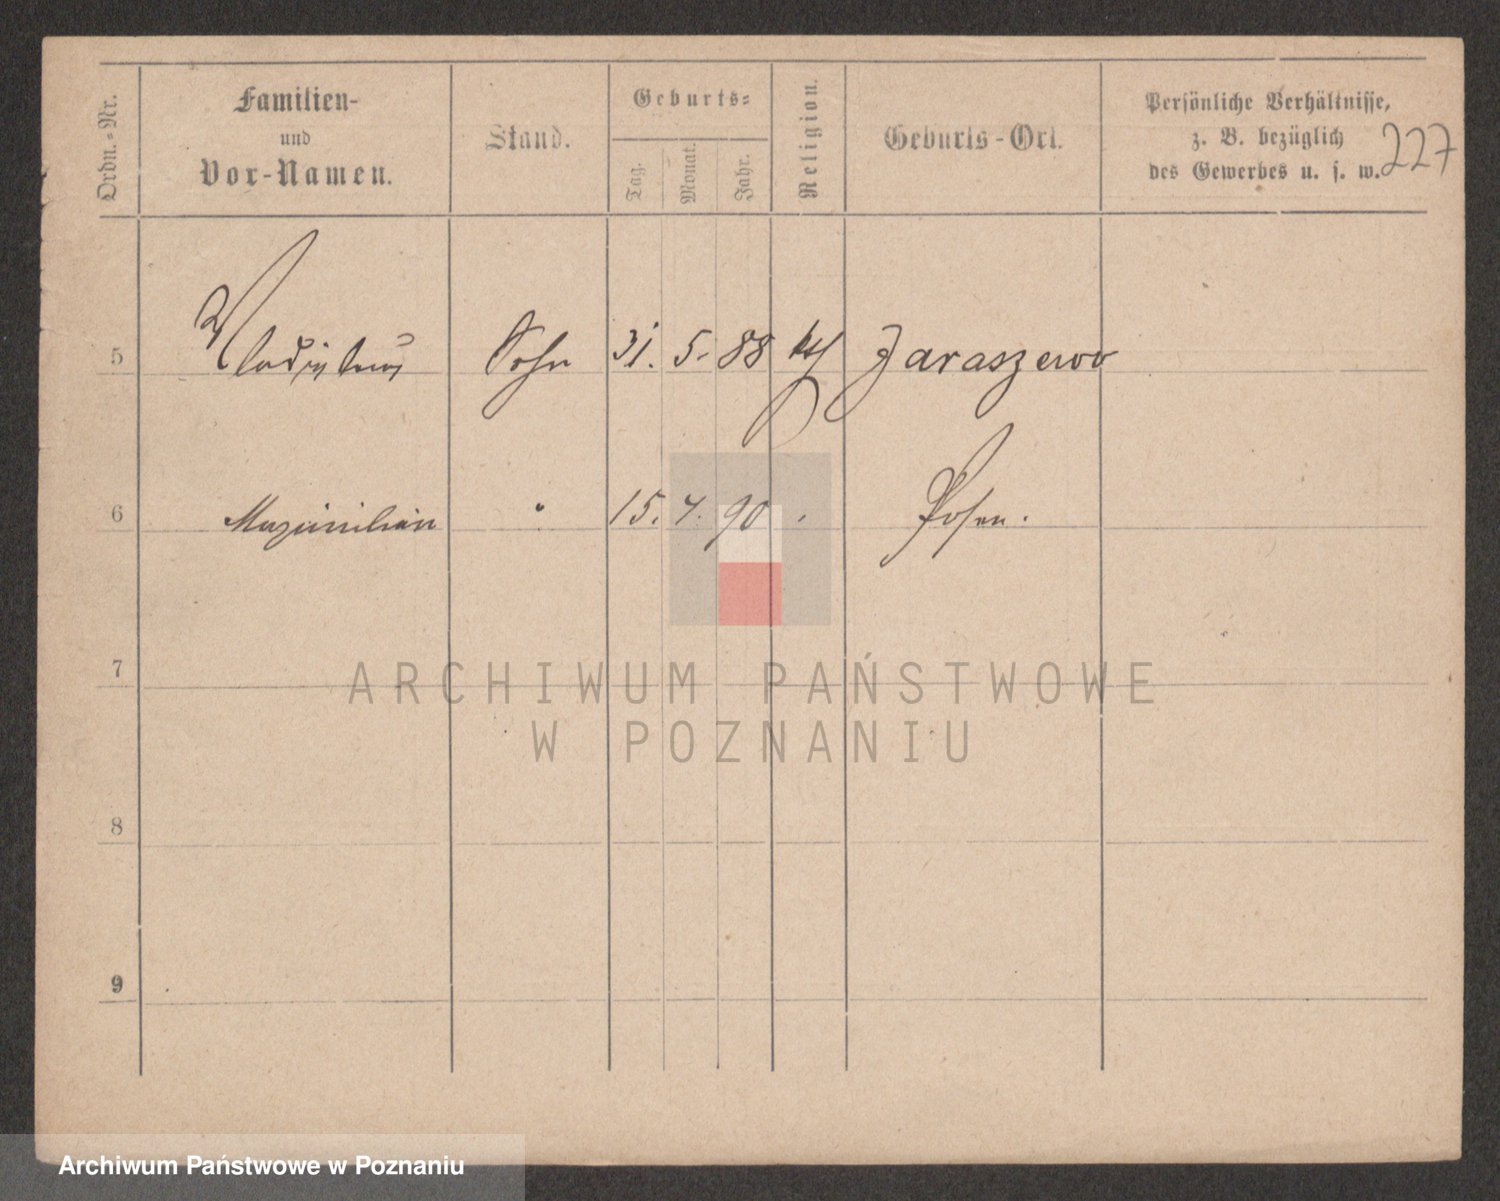 Ordn.-Nr.
Familien-
und
Vor-Namen.
Stand.
Geburts-
Tag.
Monat.
Jahr.
Religion.
Geburts-Ort.
Persönliche Verhältnisse,
z. B. bezüglich
des Gewerbes u. s. w.
227
5 Wladislaus Sohn 31. 5. 88 kth Jaraszewo
6 Maximilian " 15. 4. 90 " Posen.
7
ARCHIWUM PAŃSTWOWE
W POZNANIU
8
9
Archiwum Państwowe w Poznaniu